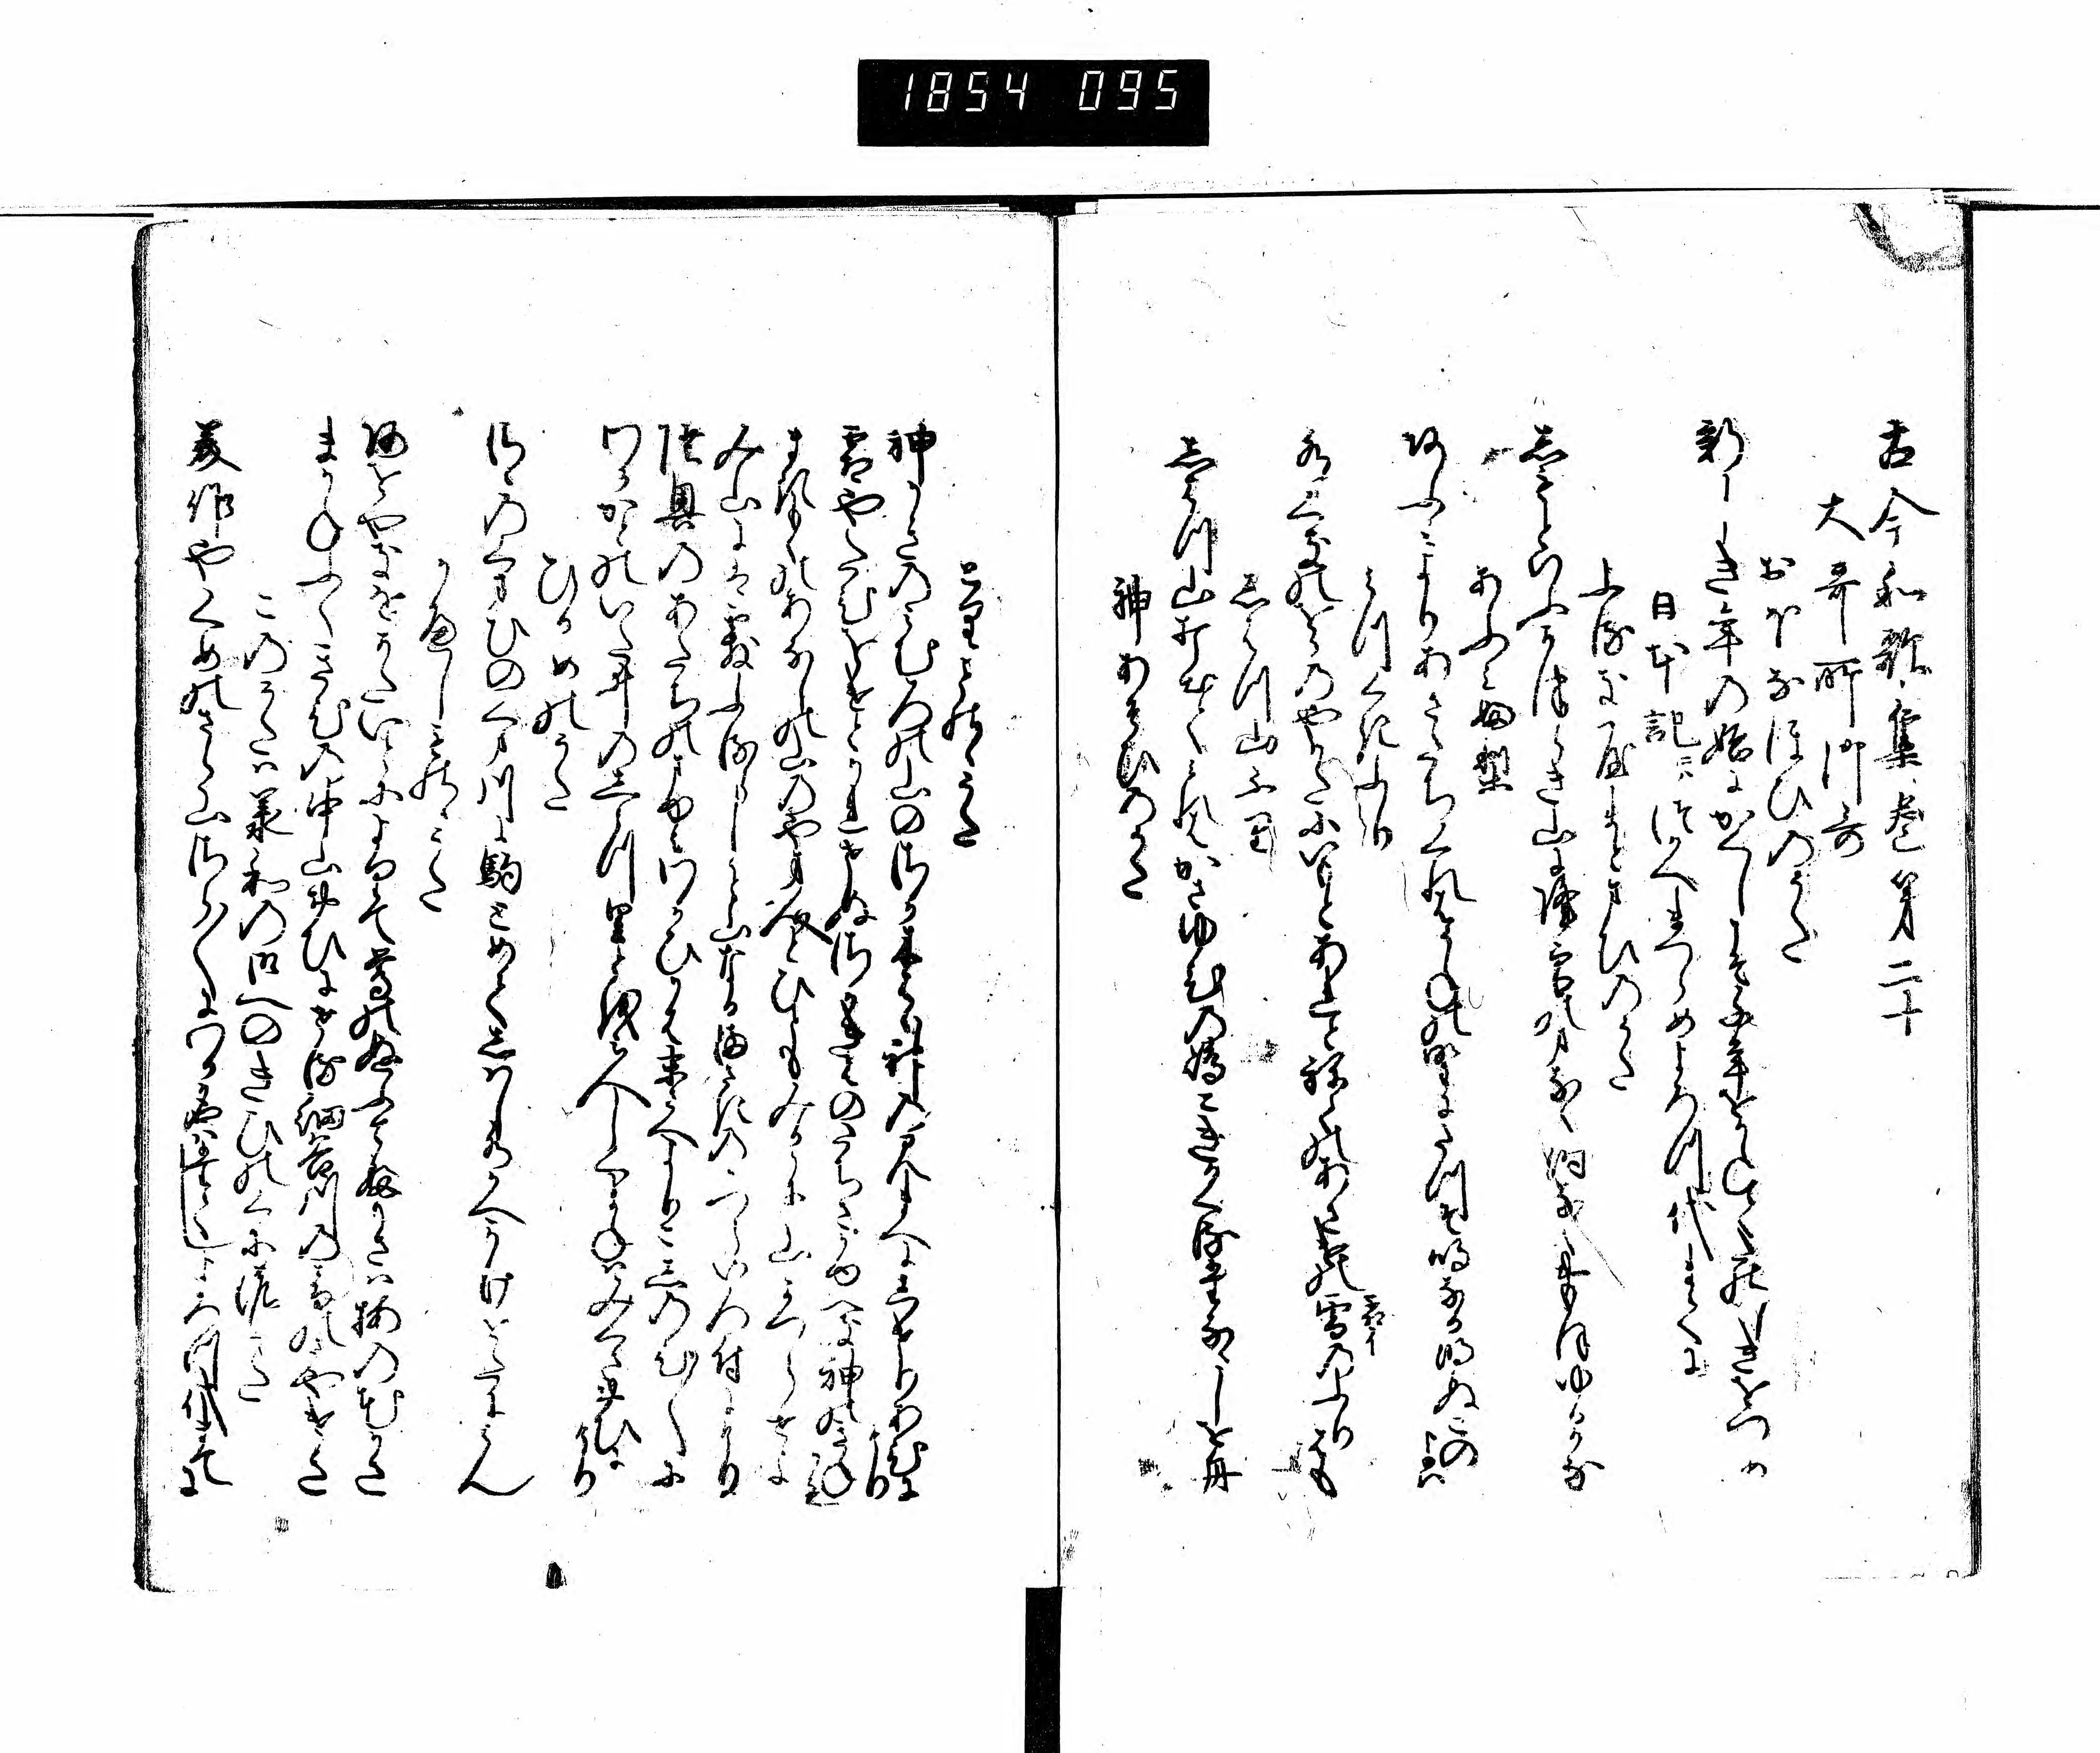 1854 095
古今和歌集巻第二十
大哥所御哥
おほなほひのうた
新しき年の始にかくしこそ千年をかねてたのしきをつめ
日本記ニハつかへまつらめよろつ代まてに
ふるきやまとまひのうた
しもとゆふかつらき山に降雪のまなく時なくおもほゆるかな
あふみ曲
近江よりあさたちくれはうねの野にたつそ鳴なる明ぬこの
よは
みつくきふり
水くきのをかのやかたにいもとあれとねてのあさけの霜のふりはも
しはつ山ふり
しはつ山打出てみれはかさゆひの嶋こきかくるたなゝしを舟
神あそひのうた
とりものゝうた
神かきのみむろの山のさかきはは神のみまへにしけりあひに
けり
霜やたひをけとかれせぬさかきはのたちさかゆへき神のきね
かも
まきもくのあなしの山の山人と人もみるかに山かつらせよ
み山にはあられふるらしと山なるまさきのかつら色付にけり
陸奥のあたちのまゆみわかひかはすゑさへよりこしのひ〳〵に
わかかとのいた井のし水里とをみ人しくまねはみくさおひに
けり
ひるめのうた
さゝのくまひのくま川に駒とめてしはし水かへかけをたにみん
かへしものゝうた
青柳をかたいとによりて鶯のぬふてふ笠は梅の花かさ
まかねふくきひの中山おひにせる細谷川のをとのさやけさ
このうたハ承和の御へのきひのくにの哥
美作やくめのさら山さら〳〵にわか名はたてしよろつ代まてに